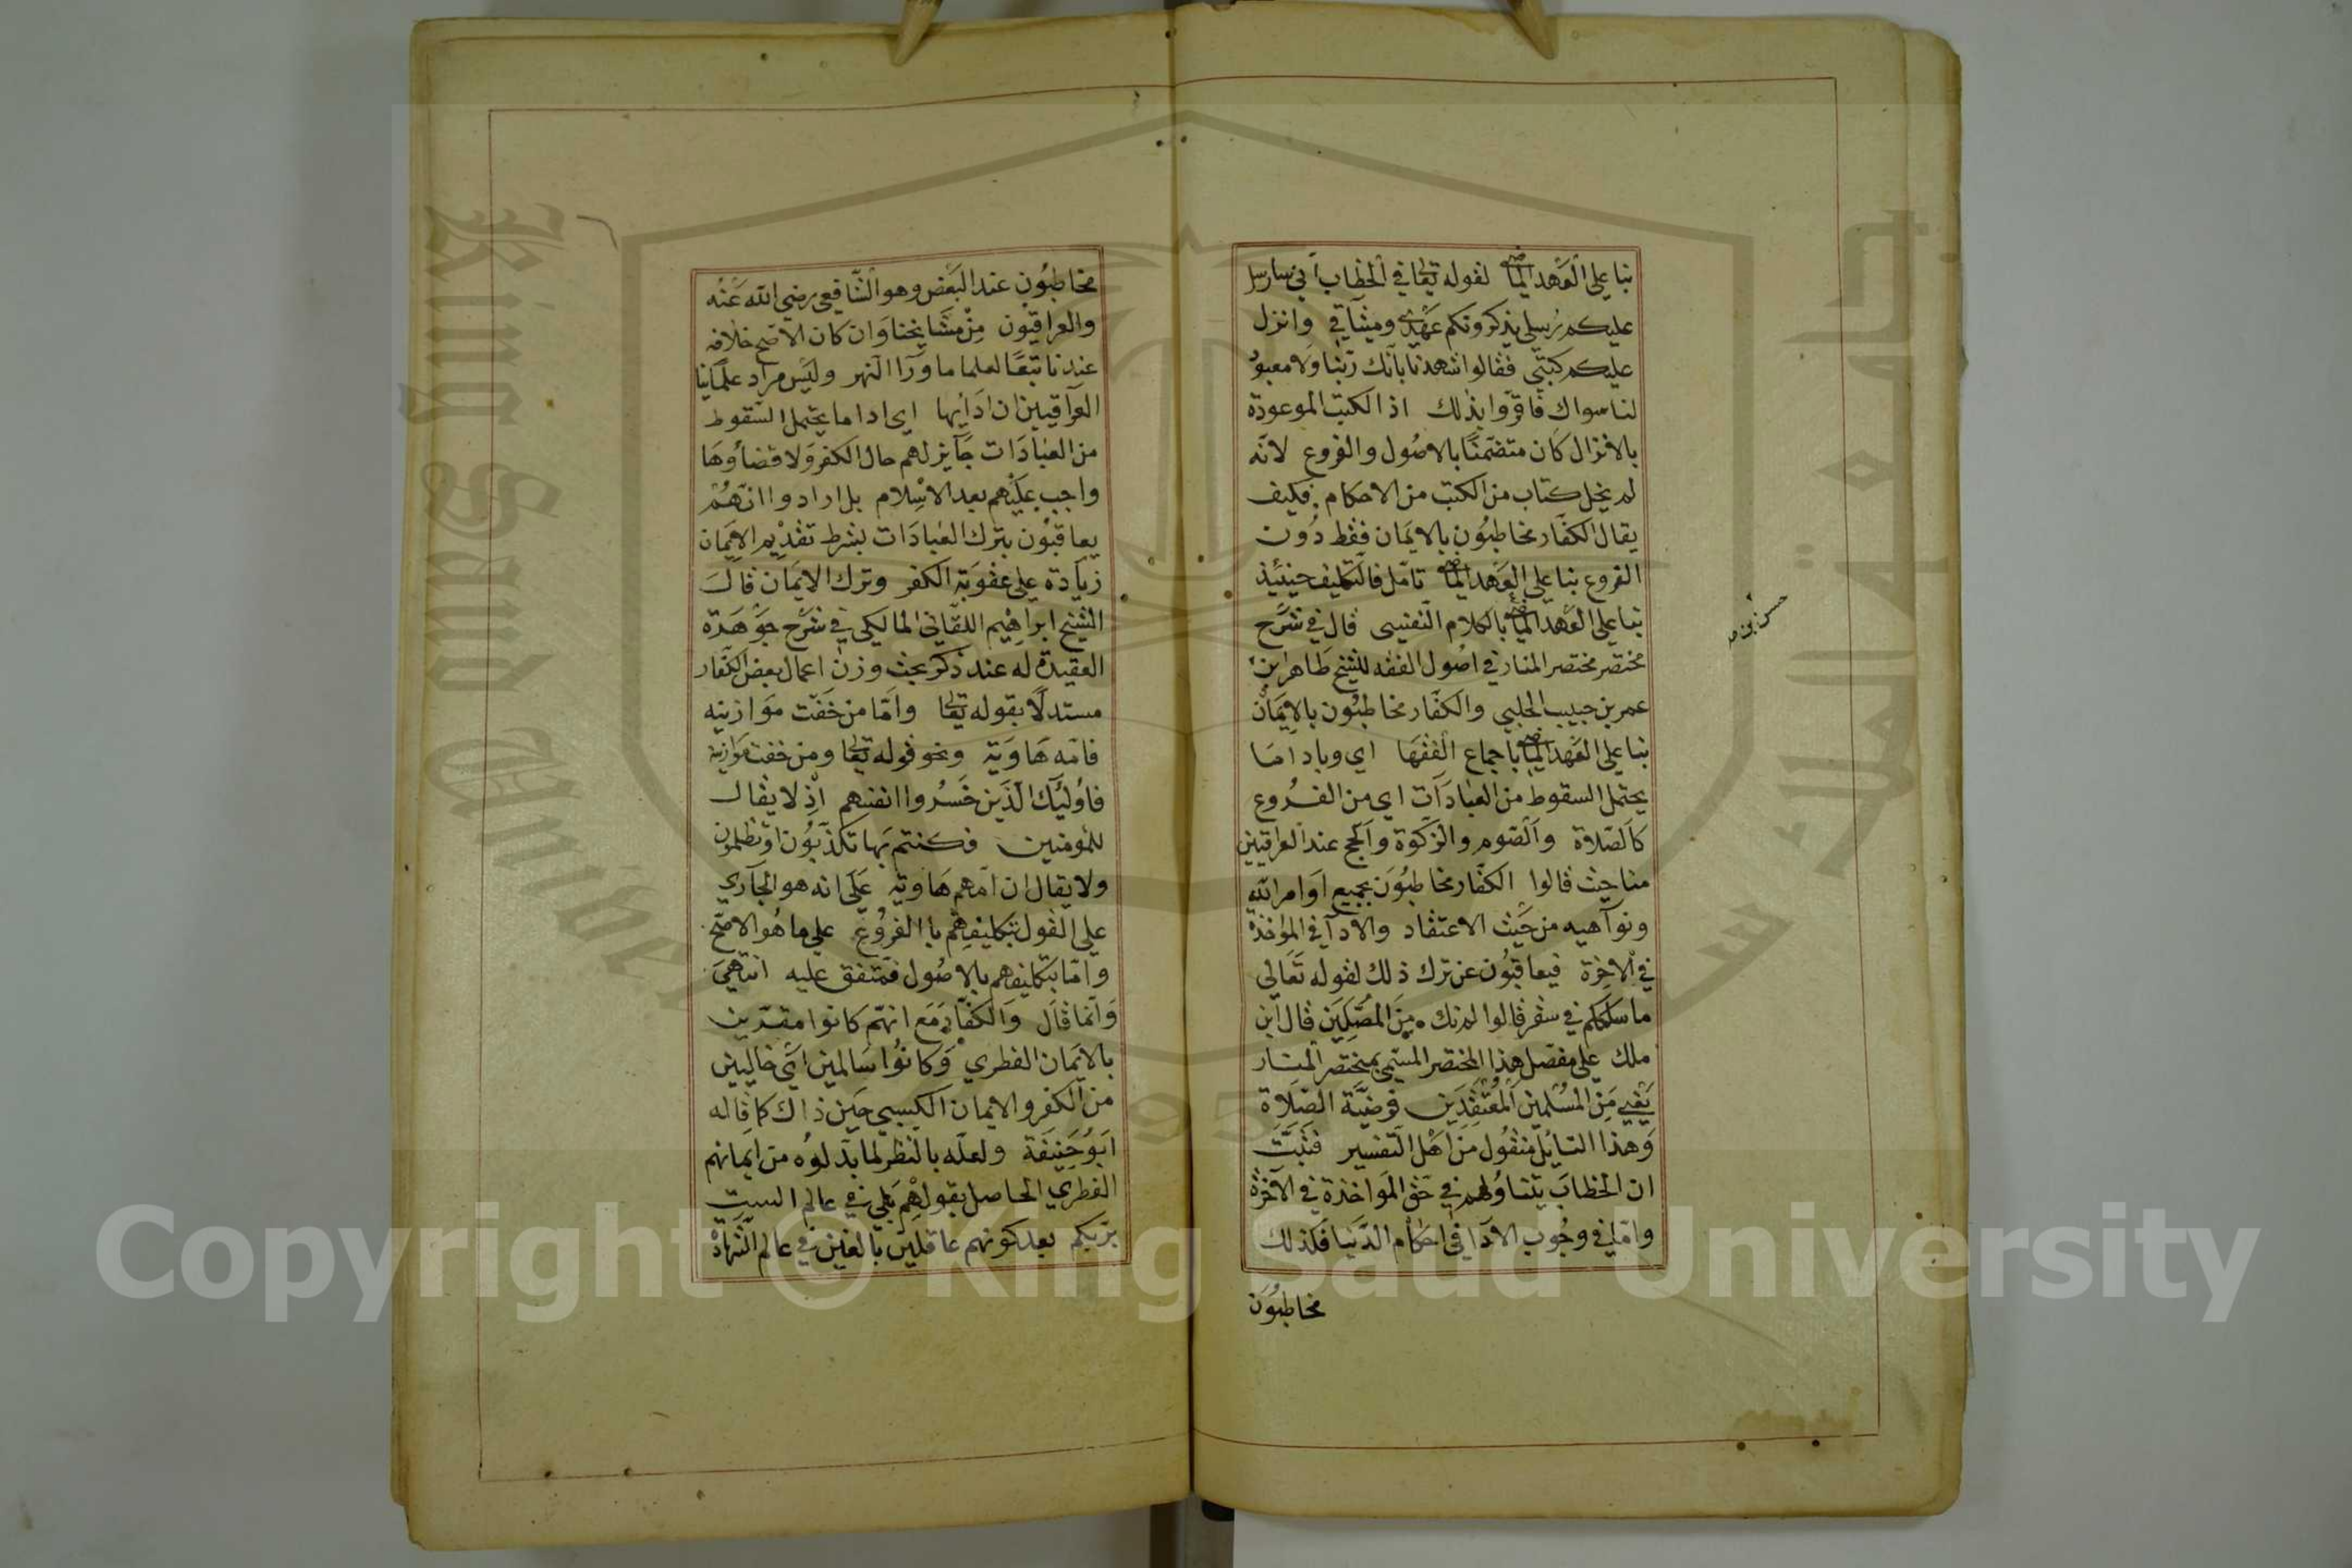 بنا على العهد الماضى لقوله تعا في الخطاب أني سارسل
عليكم رسلي يذكرونكم عهدي وميثاقي وانزل
عليكم كتبي فقالوا شهدنا بأنك ربنا ولا معبود
لنا سواك فاقروا بذلك اذ الكتب الموعودة
بالانزال كان متضمنًا بالاصول والفروع لانه
لم يخل كتاب من الكتب من الاحكام فكيف
يقال الكفار مخاطبون بالايمان فقط دون
الفروع بنا على العهد الماضى تامل فالتكليف حينئذ
بنا على العهد الماضى بالكلام النفسى قال في شرح
مختصر مختصر المنار في اصول الفقه للشيخ طاهر ابن
عمر بن حبيب الحلبي والكفار مخاطبون بالايمان
بنا على العهد الماضى باجماع الفقها اي وباداما
يحتمل السقوط من العبادات اي من الفروع
كالصلاة والصوم والزكوة والحج عند العراقيين
منا حيث قالوا الكفار مخاطبون بجميع اوامر الله
ونواهيه من حيث الاعتقاد والادآ في المؤاخذة
في الاخرة فيعاقبون عن ترك ذلك لقوله تعالى
ما سلككم في سقر قالوا لم نك من المصلين قال ابن
ملك على مفصل هذا المختصر المسمى بمختصر المنار
يعني من المسلمين المعتقدين فرضية الصلاة
وهذا التايل منقول من اهل التفسير فثبت
ان الخطاب يتناولهم في حق المواخذة في الآخرة
واما في وجوب الادآ في احكام الدنيا فكذلك
مخاطبون
حسن بن
مخاطبون عند البعض وهو الشافعى رضي الله عنه
والعراقيون من مشايخنا وان كان الاصح خلافه
عندنا تبعًا لعلما ما ورآ النهر وليس مراد علمآئنا
العراقيين ان ادايها اي ادا ما يحتمل السقوط
من العبادات جآيز لهم حال الكفر ولا قضاؤها
واجب عليهم بعد الاسلام بل ارادوا انهم
يعاقبون بترك العبادات بشرط تقديم الايمان
زيادة على عقوبة الكفر وترك الايمان قال
الشيخ ابراهيم اللقاني المالكي في شرح جوهدة
العقيدة له عند ذكر بحث وزن اعمال بعض الكفار
مستدلًا بقوله تعا واما من خفت موازينه
فامه هاوية ونحو قوله تعا ومن خفت موازينه
فاولئك الذين خسروا انفسهم اذ لا يقال
للمومنين فكنتم بها تكذبون او تظلمون
ولا يقال ان امهم هاوية على انه هو الجآري
على القول بتكليفهم با الفروع على ما هو الاصح
واما بتكليفهم بالاصول فمتفق عليه انتهى
وانما قال والكفار مع انهم كانوا مقرين
بالايمان الفطري وكانوا سالمين اي خاليين
من الكفر والايمان الكسبي حين ذاك كما قاله
ابو حنيفة ولعله بالنظر لما بدلوه من ايمانهم
الفطري الحاصل بقولهم بلى في عالم الست
بربكم بعد كونهم عاقلين بالغين في عالم الشهادة
Copyright © King Saud University
King Saud University